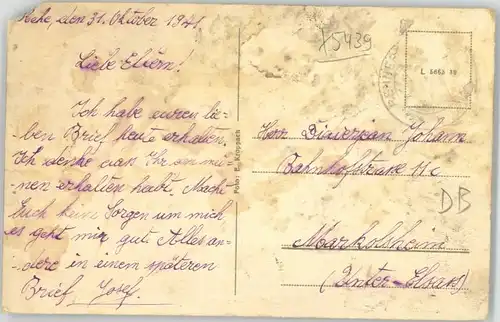 Rehe, den 31. Oktober 1941.
Liebe Eltern!
Ich habe euren lie-
ben Brief heute erhalten.
Ich denke das Ihr an mei-
nen erhalten habt. Macht
Euch keine Sorgen um mich
es geht mir gut Alles an-
dere in einem späteren
Brief Josef.
Foto: E.
x5439
L 5653 19
Herr Johann
Bahnhofstrase 11c
DB
Markolsheim
(Unter-Elsas)